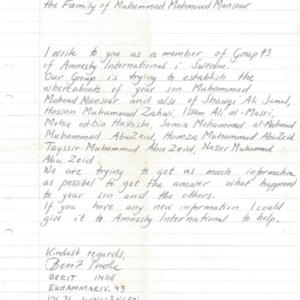 the Family of Muhammad Mahmoud Mansour
I write to you as a member of Group 43
of Amnesty International i Sweden.
Our Group is trying to establish the
whereabouts of your son Muhammad
Mahoud Mansour and also of Shawgi Ali Jamul,
Hassan Muhammad Zahwi, Issam Ali al-Masri,
ed-Din Hashishi, Jamia Mohammed al-Mahmoud
Muhammad AbuZeid, Hamza Muhammad AbuZeid
Tayssir Muhammad Abu Zeid, Nasser Muhammad
Abu Zeid.
We are trying to get as much information
as possibel to get the answer what happend
to your son and the others.
if you have any new information I could
give it to Amnesty International to help.
Kindest regards,
BERIT INDE
EKHAMMARSV. 43